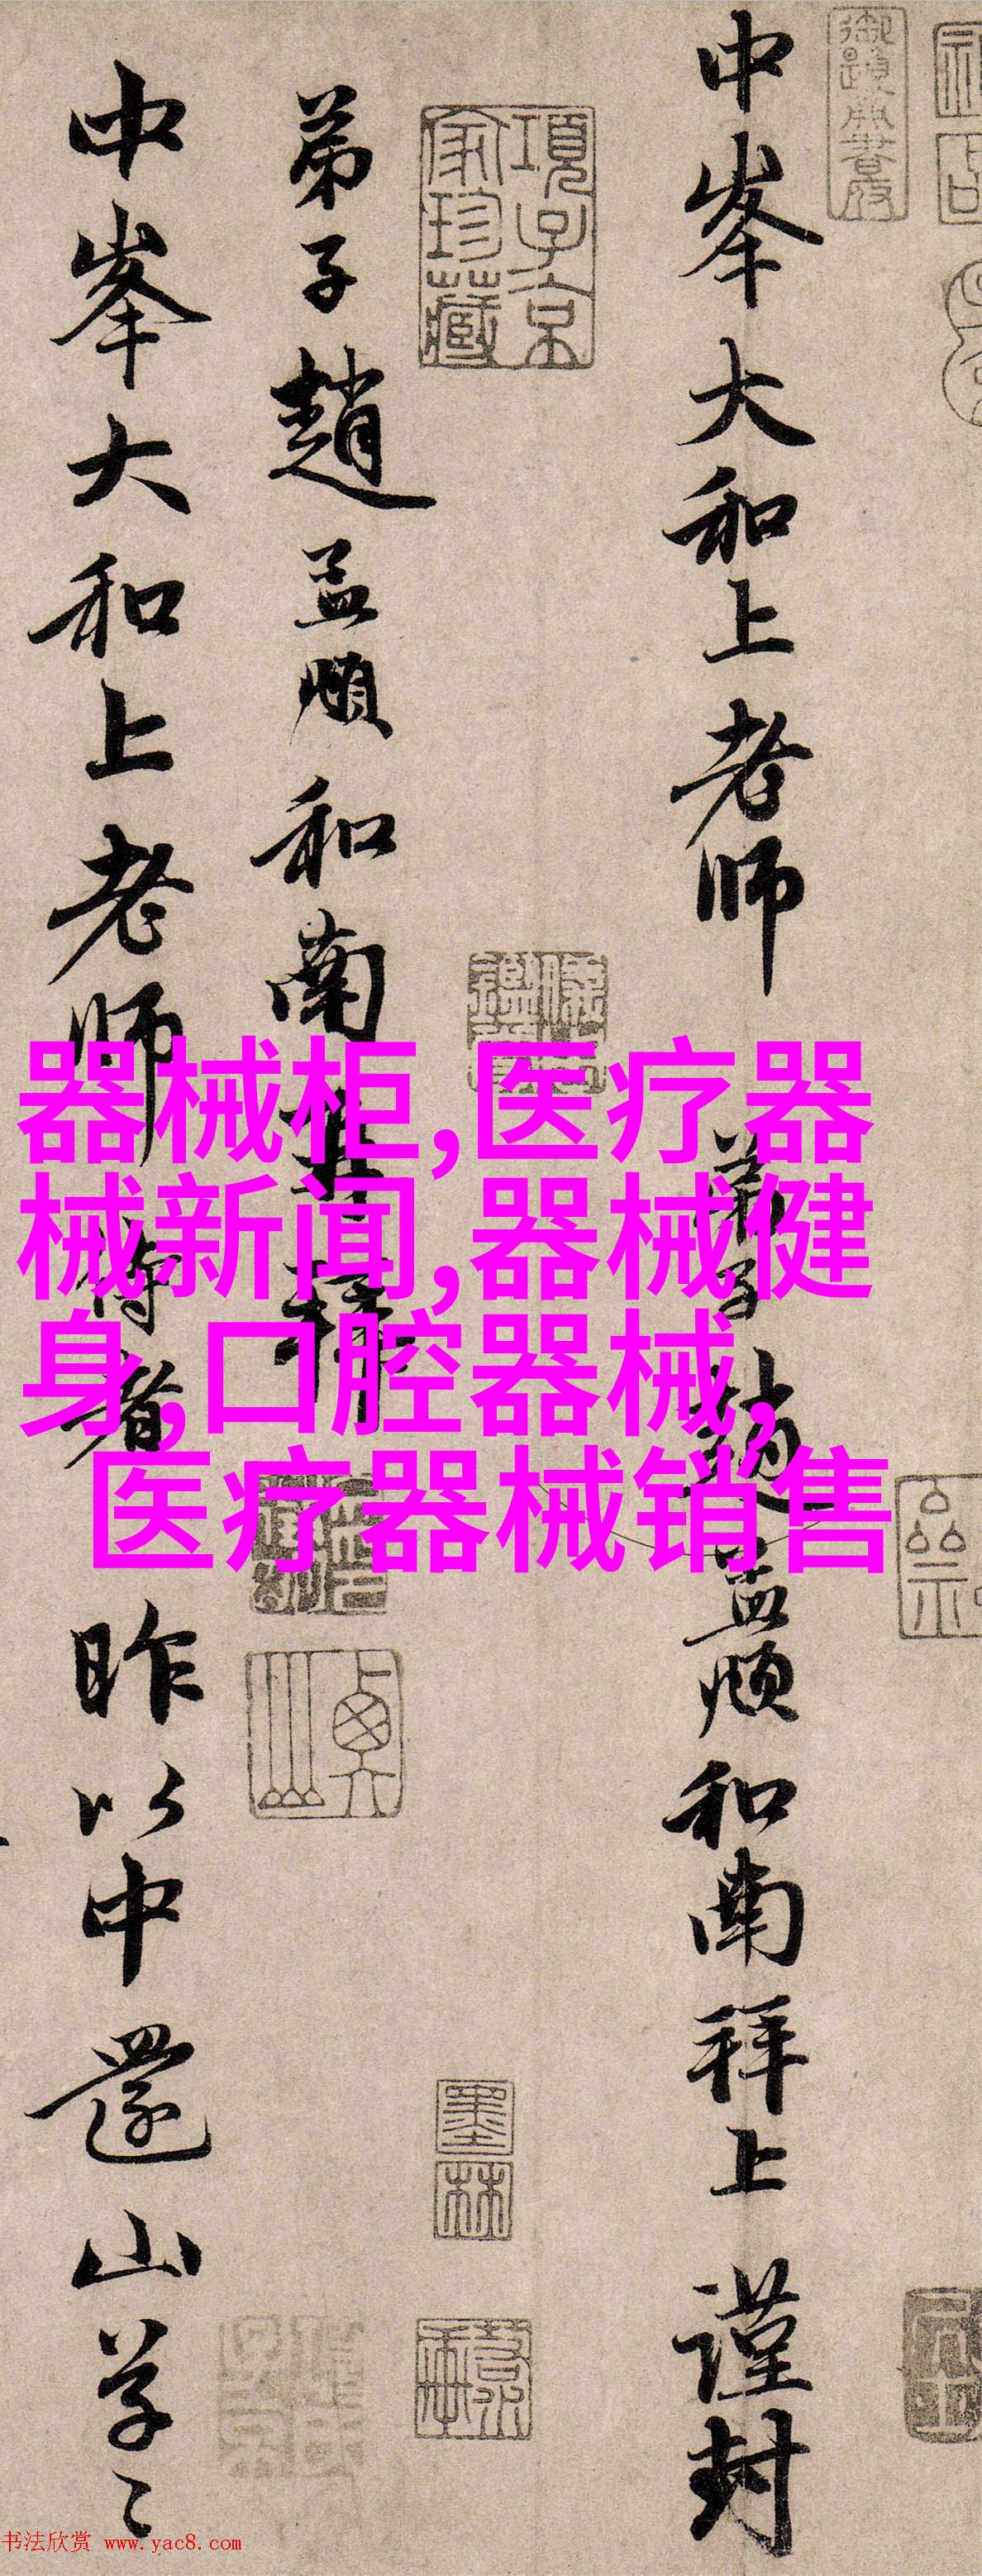 中峯大和上老师 弟子趙孟頫和南拜上 謹封
弟子趙孟頫和南拜
中峯大和上老师侍者 昨以中還山草〻
項子京
家珍藏
墨
林
器械柜,医疗器
械新闻,器械健
身,口腔器械,
医疗器械销售
书法欣赏 www.yac8.com